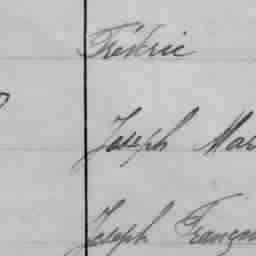 Frédéric
Joseph Mar
Joseph Françoi